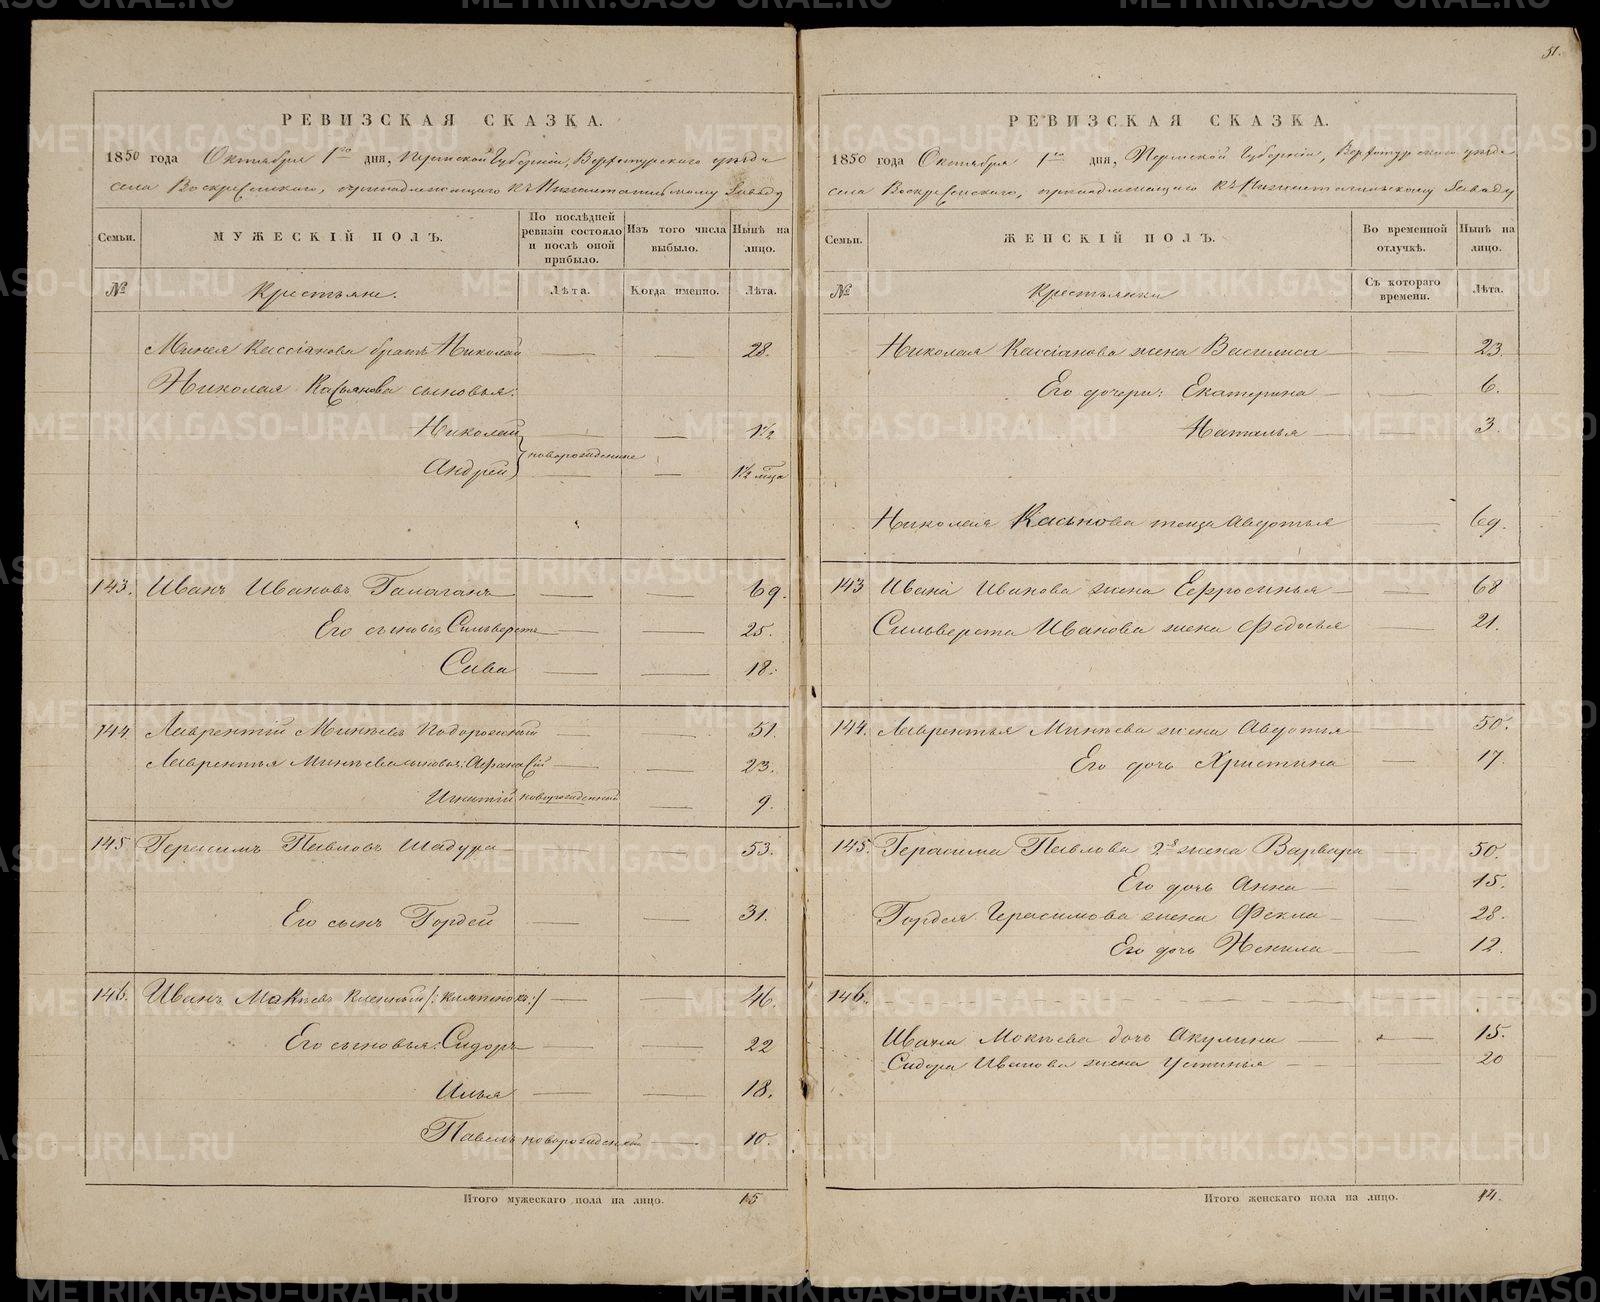 51.
РЕВИЗСКАЯ СКАЗКА.
1850 года Октября 1го дня, Пермской Губерніи, Верхотурского уезда
села Воскресенского, принадлежащаго къ Нижнетагильскому заводу
Семьи. МУЖЕСКІЙ ПОЛЪ. По послѣдней ревизіи состояло и послѣ оной прибыло. Изъ того числа выбыло. Нынѣ на лицо.
№ Крестьяне. Лѣта. Когда именно. Лѣта.
Минея Кассіанова братъ Николай — — 28.
Николая Касьянова сыновья:
Николай — — 1½
новорожденные
Андрей — — 1½ мца
143. Иванъ Ивановъ Галаганъ — — 69.
Его сыновья Сильверстъ — — 25.
Сава — — 18.
144 Лаврентій Минѣевъ Подорожный — — 51.
Лаврентья Минѣева сыновья: Афанасій — — 23.
Игнатій новорожденный — 9.
145 Герасимъ Павловъ Шадура — — 53.
Его сынъ Гордей — — 31.
146. Иванъ Мокѣевъ — — 46.
Его сыновья: Сидоръ — — 22
Илья — — 18.
Павелъ новорожденный — 10.
Итого мужескаго пола на лицо. 15
РЕВИЗСКАЯ СКАЗКА.
1850 года Октября 1го дня, Пермской Губерніи, Верхотурского уезда
села Воскресенского, принадлежащаго къ Нижнетагильскому заводу
Семьи. ЖЕНСКІЙ ПОЛЪ. Во временной отлучкѣ. Нынѣ на лицо.
№ Крестьянки Съ котораго времени. Лѣта.
Николая Кассіанова жена Василиса — — 23.
Его дочери: Екатерина — — 6.
Наталья — — 3.
Николая Касьянова теща Авдотья — 69.
143 Ивана Иванова жена Ефросинья — — 68
Сильверста Иванова жена Федосья — 21.
144. Лаврентья Минѣева жена Авдотья — 50.
Его дочь Христина — — 17.
145. Герасима Павлова 2я жена Варвара — 50.
Его дочь Анна — — 15.
Гордея Герасимова жена Фекла — — 28.
Его дочь Ненила — — 12.
146.
Ивана Мокѣева дочь Акулина — — 15.
Сидора Иванова жена Устинья — — 20
Итого женскаго пола на лицо. 14.
METRIKI.GASO-URAL.RU